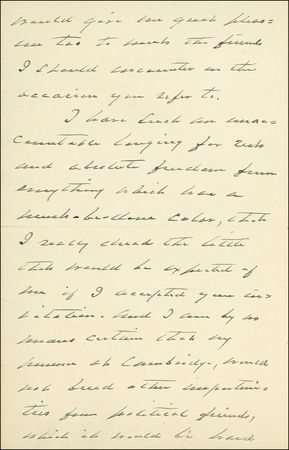 would give me great pleas=
ure too to meet the friends
I should encounter on the
occasion you refer to.
I have such an unac=
countable longing for rest
and absolute freedom from
everything which has a
must-be-done color, that
I really dread the little
that would be expected of
me if I accepted your in=
vitation. And I am by no
means certain that my
presence at Cambridge, would
not breed other importuni=
ties from political friends,
which it would be hard